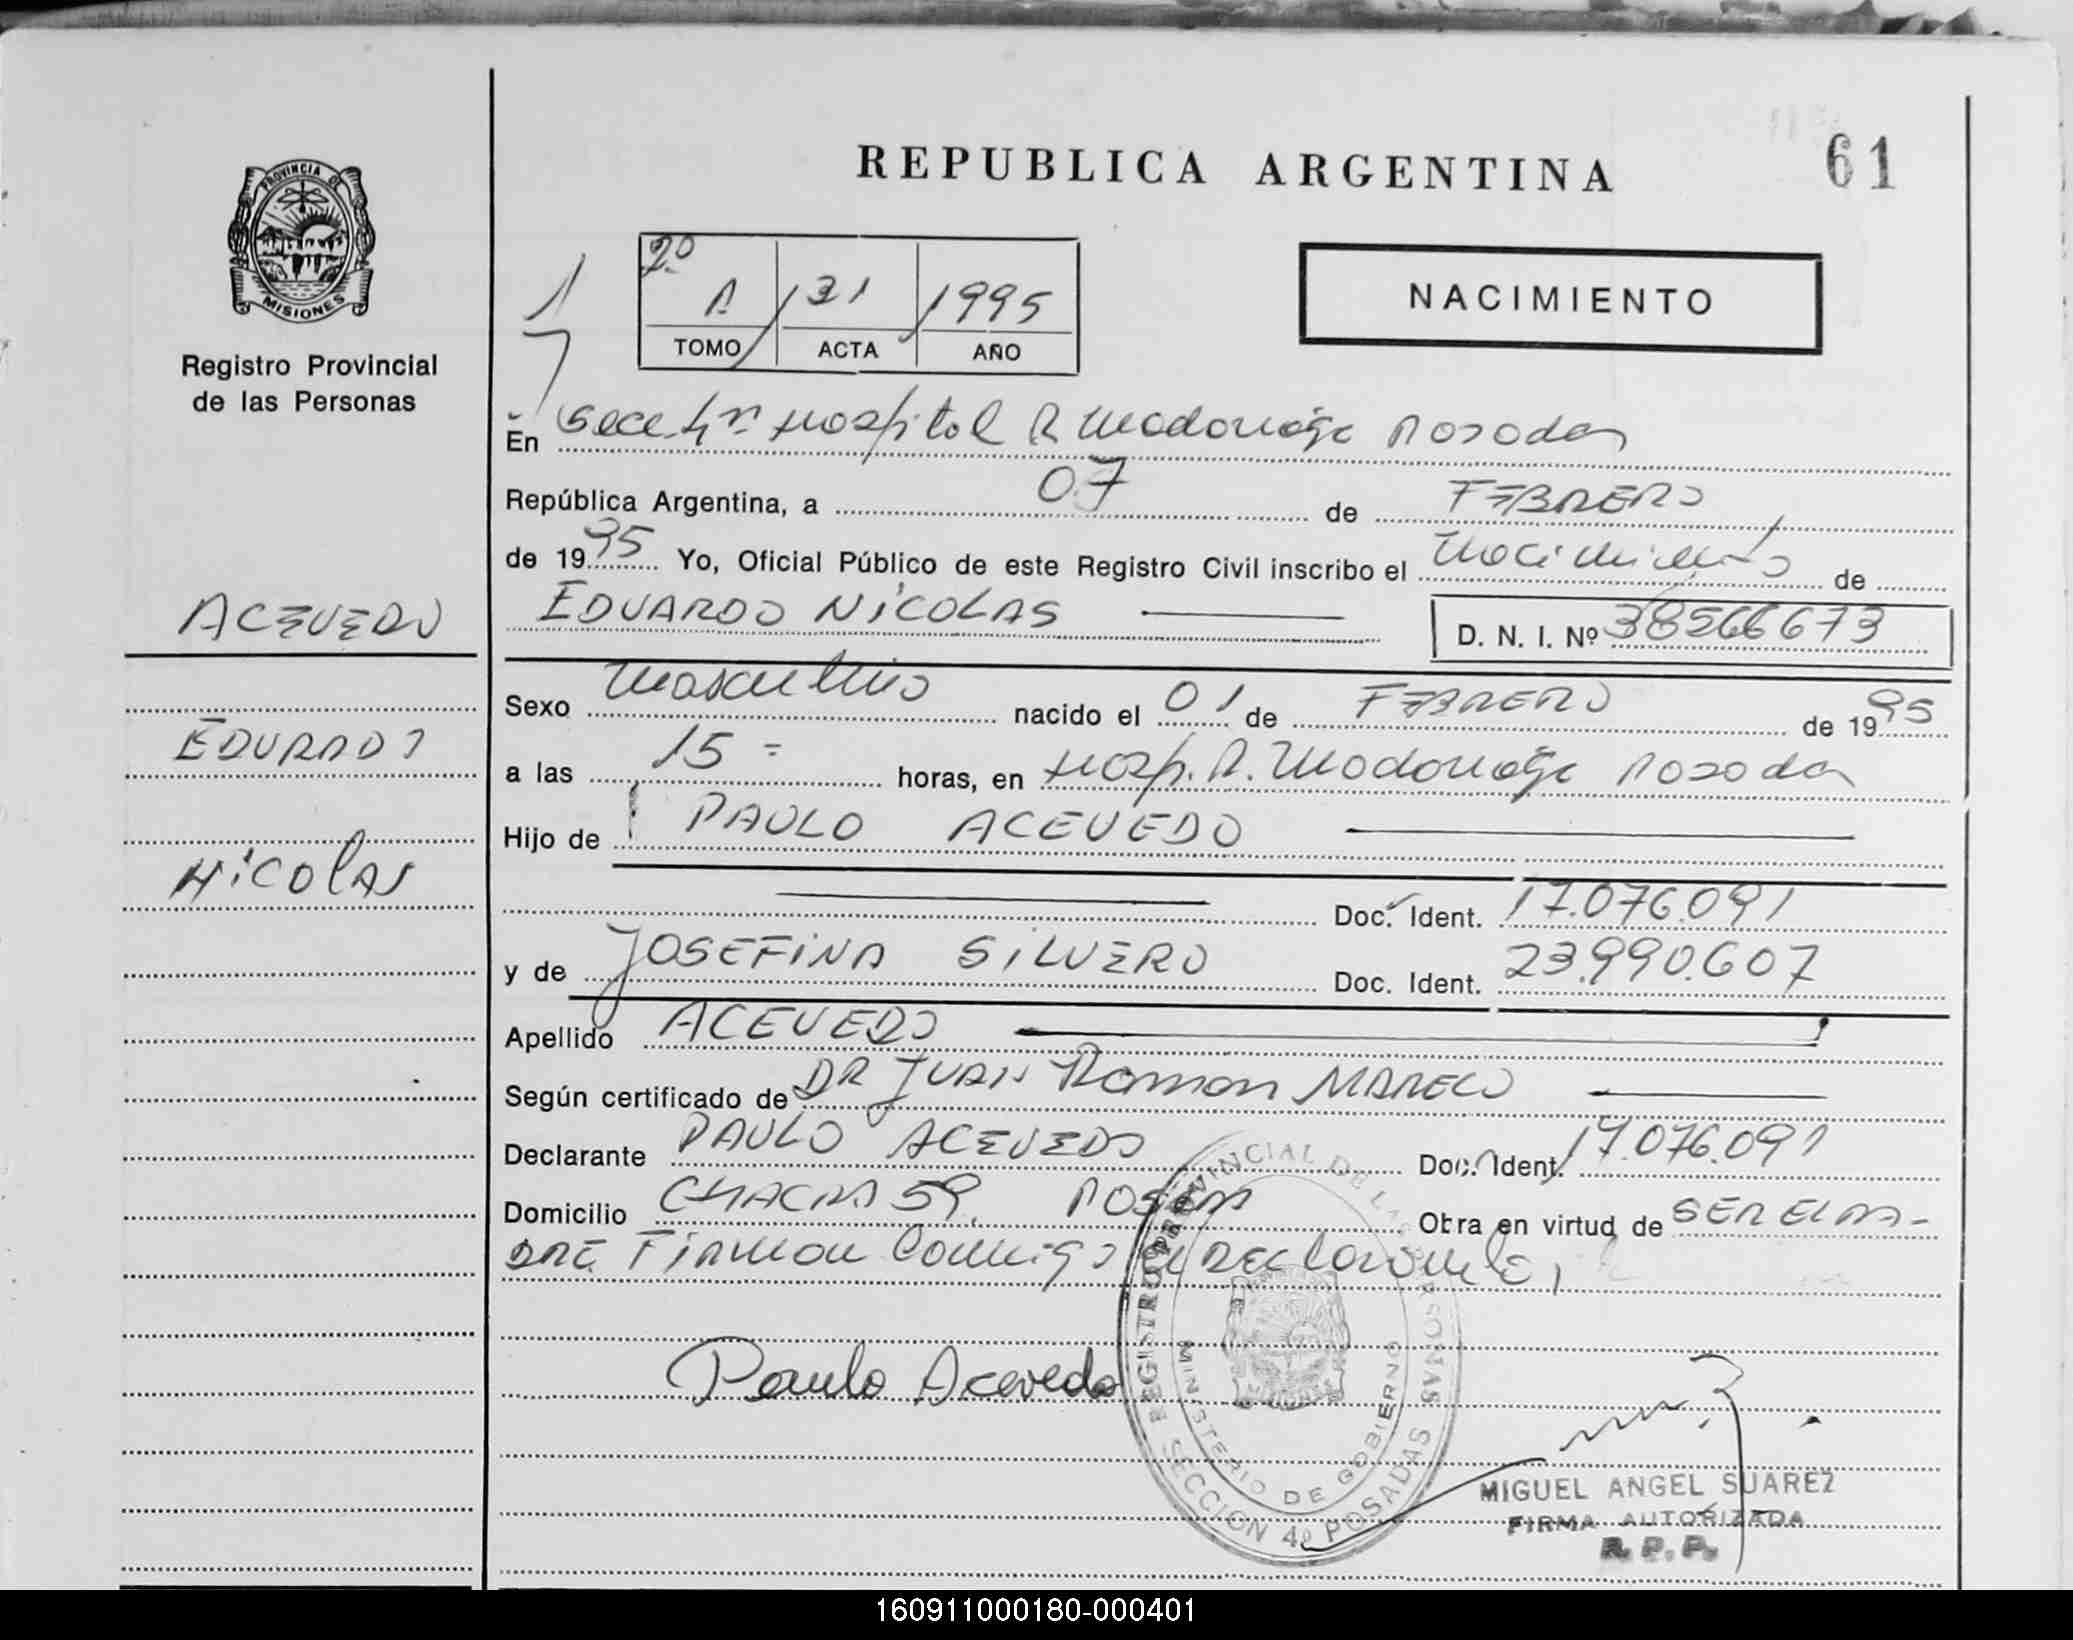 REPUBLICA ARGENTINA
61
PROVINCIA DE
MISIONES
Registro Provincial
de las Personas
2º
A 31 1995
TOMO ACTA AÑO
NACIMIENTO
En Secc. 4ª Hospital R Madariaga Posadas
República Argentina, a 07 de FEBRERO
de 1995 Yo, Oficial Público de este Registro Civil inscribo el Nacimiento de
ACEVEDO
EDUARDO NICOLAS
D. N. I. Nº 38566673
Sexo Masculino nacido el 01 de FEBRERO de 1995
EDUARDO
a las 15 = horas, en Hosp. R. Madariaga Posadas
Hijo de PAULO ACEVEDO
NICOLAS
Doc. Ident. 17.076.091
y de JOSEFINA SILVERO Doc. Ident. 23.990.607
Apellido ACEVEDO
Según certificado de DR JUAN Ramon MARECO
Declarante PAULO ACEVEDO Doc. Ident. 17.076.091
Domicilio CHACRA 59. POSDAS Obra en virtud de SER EL PA-
DRE FIRMAN Conmigo el DECLARANTE,
Paulo Acevedo
REGISTRO PROVINCIAL DE LAS PERSONAS
MINISTERIO DE GOBIERNO
SECCION 4º POSADAS
MIGUEL ANGEL SUAREZ
FIRMA AUTORIZADA
R. P. P.
160911000180-000401